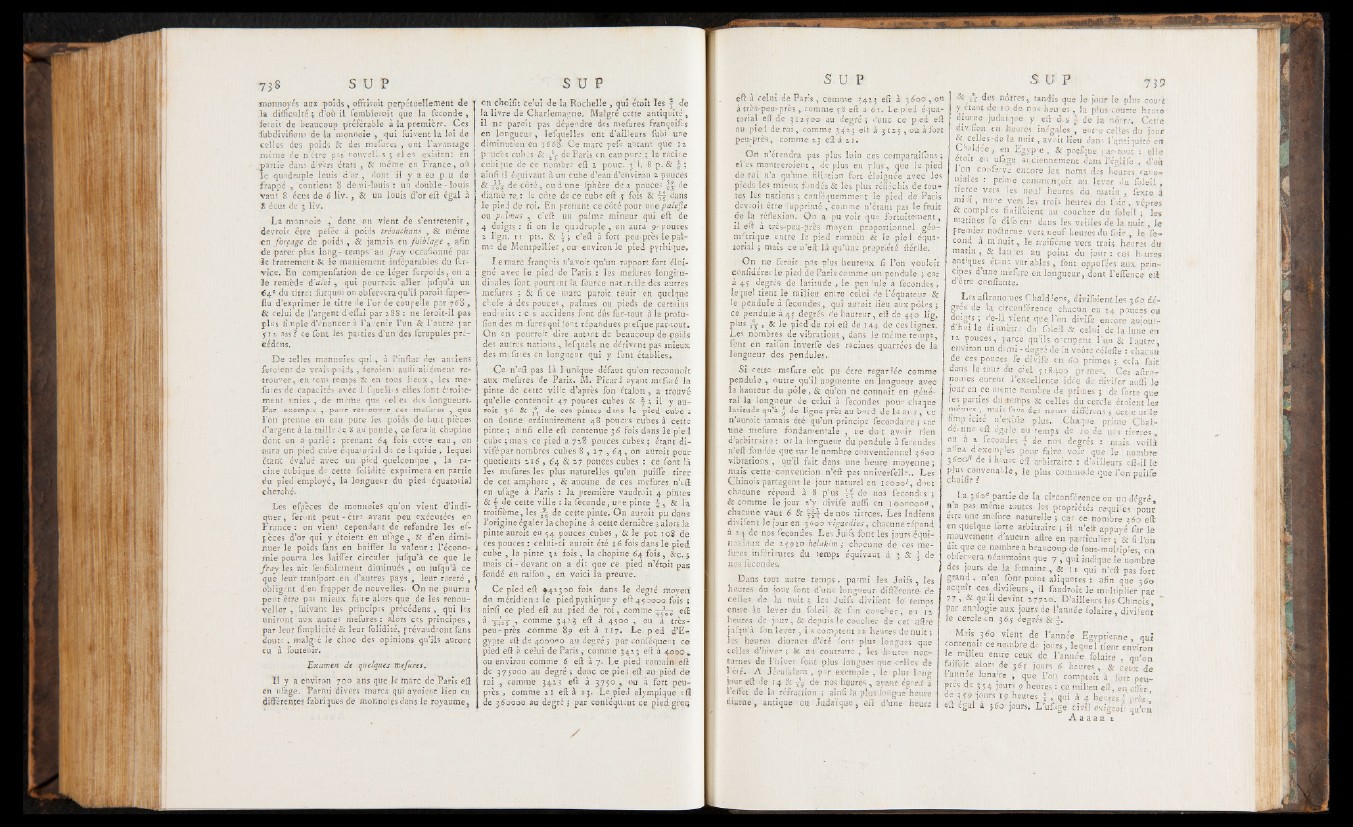 738 S U P
monnoyés aux poids, offriroit perpétuellement de
la difficulté; d'où il sembleroit que la seconde,
seroit de beaucoup préférable à la première. Ces
subdivisions de la monnoie, qui suivent la loi de
celles des poids & des mesures, ont l'avantage
même de n'être pas nouvelles; elles existent en
partie dans divers états, & même en France, où
le quadruple louis d'or, dont il y a eu peu de
frappé, contient 8 demi-louis: un double-louis
vaut 8 écus de 6 liv., & un louis d'or est égal à
8 écus de 3 liv.
La monnoie, dont on vient de s'entretenir,
devroit être pesée à poids trébuchans, & même
en forçage de poids, & jamais en foiblage, afin
de parer plus long-temps au fray occasionné par
le frottement & le maniement inséparables du ser-
vice. En compensation de ce léger surpoids, on a
le remède d'aloi, qui pourroit aller jusqu'à un
64e du titre: surquoi on observera qu'il paroît super-
flu d'exprimer le titre de l'or de coupelle par 768,
& celui de l'argent d'essai par 288: ne seroit-il pas
plus simple d'énoncer à l'avenir l'un & l'autre par
512 ass? ce sont les parties d'un des scrupules pré-
cédens.
De telles monnoies qui, à l'instar des anciens
seroient de vrais poids, seroient aussi aisément re-
trouver, en tous temps & en tous lieux, les me-
sures de capacités avec lesquelles elles sont étroite-
ment unies, de même que celles des longueurs.
Par exemple, pour retrouver ces mesures, que
l'on prenne en eau pure les poids de huit pièces
d'argent à la taille de 8 au ponde, ce sera la chopine
dont on a parlé: prenant 64 fois cette eau, on
aura un pied cube équatorial de ce liquide, lequel
étant évalué avec un pied quelconque, la ra-
cine cubique de cette solidité exprimera en partie
du pied employé, la longueur du pied équatorial
cherché.
Les espèces de monnoies qu'on vient d'indi-
quer, seront peut-être avant peu exécutées en
France: on vient cependant de refondre les es-
pèces d'or qui y étoient en usage, & d'en dimi-
nuer le poids sans en baisser la valeur: l'écono-
mie pourra les laisser circuler jusqu'à ce que le
fray les ait sensiblement diminués, ou jusqu'à ce
que leur transport en d'autres pays, leur rareté,
obligent d'en frapper de nouvelles. On ne pourra
peut-être pas mieux faire alors que de les renou-
veller, suivant les principes précédens, qui les
uniront aux autres mesures: alors ces principes,
par leur simplicité & leur solidité, prévaudront sans
doute, malgré le choc des opinions qu'ils auront
eu à soutenir.
Examen de quelques mesures.
Il y a environ 700 ans que le marc de Paris est
en usage. Parmi divers marcs qui avoient lieu en
différentes fabriques de monnoies dans le royaume,
S U P
on choisit celui de la Rochelle, qui étoit les de
la livre de Charlemagne. Malgré cette antiquité,
il ne paroît pas dépendre des mesures françoises
en longueur, lesquelles ont d'ailleurs subi une
diminution en 1668. Ce marc pèse autant que 12
pouces cubes & de Paris en eau pure; la racine
cubique de ce nombre est 2 pouc. 3 l. 8 p. &
ainsi il équivaut à un cube d'eau d'environ 2 pouces
& de côté, ou à une sphère de 2 pouces de
diamètre: le côté de ce cube est 5 fois & dans
le pied de roi. En prenant ce côté pour une palaste
ou palmes, c'est un palme mineur qui est de
4 doigts: si on le quadruple, on aura 9 pouces
2 lign. 11 pts. & c'est à fort peu-près le pal-
me de Montpellier, ou environ le pied pythique.
Le marc françois n'avoit qu'un rapport fort éloi-
gné avec le pied de Paris: les mesures longitu-
dinales sont pourtant la source naturelle des autres
mesures; & si ce marc paroît tenir en quelque
chose à des pouces, palmes ou pieds de certains
endroits ces accidens sont dûs sur-tout à la profu-
sion des mesures qui sont répandues presque par-tout.
On en pourroit dire autant de beaucoup de poids
des autres nations, lesquels ne dérivent pas mieux
des mesures en longueur qui y sont établies.
Ce n'est pas là l'unique défaut qu'on reconnoît
aux mesures de Paris. M. Picard ayant mesuré la
pinte de cette ville d'après son étalon, a trouvé
qu'elle contenoit 47 pouces cubes & il y au-
roit 36 & de ces pintes dans le pied cube:
on donne ordinairement 48 pouces cubes à cette
pinte; ainsi elle est contenue 36 fois dans le pied
cube; mais ce pied a 1728 pouces cubes; étant di-
visé par nombres cubes 8, 27, 64, on auroit pour
quotients 216, 64 & 27 pouces cubes: ce sont là
les mesures les plus naturelles qu'on puisse tirer
de cet amphore, & aucune de ces mesures n'est
en usage à Paris: la première vaudroit 4 pintes
& de cette ville: la seconde, une pinte, & la
troisième, les de cette pinte. On auroit pu dans
l'origine égaler la chopine à cette dernière; alors la
pinte auroit eu 54 pouces cubes, & le pot 108 de
ces pouces: celui-ci auroit été 16 fois dans le pied
cube, la pinte 32 fois, la chopine 64 fois, &c.;
mais ci-devant on a dit que ce pied n'étoit pas
fondé en raison, en voici la preuve.
Ce pied est 342300 fois dans le degré moyen
du méridien: le pied pythique y est 450000 fois;
ainsi ce pied est au pied de roi, comme est
à, comme 3423 est à 4500, ou à très-
peu-près comme 89 est à 117. Le pied d'E-
gypte est de 400000 au degré; par conséquent ce
pied est à celui de Paris, comme 3423 est à 4000,
ou environ comme 6 est à 7. Le pied romain est
de 375000 au degré; donc ce pied est au pied de
roi, comme 3423 est à 3750, ou à fort peu-
près, comme 21 est à 23. Le pied olympique est
de 360000 au degré; par conséquent ce pied grec
S U P
est à celui de Paris, comme 3423 est à 3600, ou
à très-peu-près, comme 58 est à 61. Le pied équa-
torial est de 312500 au degré; donc ce pied est
au pied de roi, comme 3423 est à 3125, ou à fort
peu-près, comme 23 est à 21.
On n'étendra pas plus loin ces comparaisons;
elles montreroient, de plus en plus, que le pied
de roi n'a qu'une filiation fort éloignée avec les
pieds les mieux fondés & les plus réfléchis de tou-
tes les nations; conséquemment le pied de Paris
devroit être supprimé, comme n'étant pas le fruit
de la réflexion. On a pu voir que fortuitement,
il est à très-peu-près moyen proportionnel géo-
métrique entre le pied romain & le pied équa-
torial; mais ce n'est là qu'une propriété stérile.
On ne seroit pas plus heureux si l'on vouloit
considérer le pied de Paris comme un pendule; car
à 45 degrés de latitude, le pendule à secondes,
lequel tient le milieu entre celui de l'équateur &
le pendule à secondes, qui auroit lieu aux pôles;
ce pendule à 45 degrés de hauteur, est de 440 lig.
plus, & le pied de roi est de 144 de ces lignes.
Les nombres de vibrations, dans le même temps,
sont en raison inverse des racines quarrées de la
longueur des pendules.
Si cette mesure eût pu être regardée comme
pendule, outre qu'il augmente en longueur avec
la hauteur du pôle, & qu'on ne connoît en géné-
ral la longueur de celui à secondes pour chaque
latitude qu'à de ligne près au bord de la mer, ce
n'auroit jamais été qu'un principe secondaire; car
une mesure fondamentale, ne doit avoir rien
d'arbitraire: or la longueur du pendule à secondes
n'est fondée que sur le nombre conventionnel 3600
vibrations, qu'il fait dans une heure moyenne;
mais cette convention n'est pas universelle. Les
Chinois partagent le jour naturel en 10000', dont
chacune répond à 8 plus de nos secondes;
& comme le jour s'y divise aussi en 1000000'',
chacune vaut 6 & de nos tierces. Les Indiens
divisent le jour en 3600 viguedies, chacune répond
à 24 de nos secondes. Les Juifs font les jours équi-
noxiaux de 25920 helakim; chacune de ces me-
sures infinitimes du temps équivaut à 3 & de
nos secondes.
Dans tout autre temps, parmi les Juifs, les
heures du jour sont d'une longueur différente de
celles de la nuit; les Juifs divisent le temps
entre le lever du soleil & son coucher, en 12
heures de jour, & depuis le coucher de cet astre
jusqu'à son lever, ils comptent 12 heures de nuit;
les heures diurnes d'été sont plus longues que
celles d'hiver; & au contraire, les heures noc-
turnes de l'hiver sont plus longues que celles de
l'été. A Jérusalem, par exemple, le plus long
jour est de 14 & de nos heures, ayant égard à
l'effet de la réfraction; ainsi la plus longue heure
diurne, antique ou Judaïque, est d'une heure
S U P 739
& des nôtres, tandis que le jour le plus court
y étant de 10 de nos heures, la plus courte heure
diurne judaïque y est des de la nôtre. Cette
division en heures inégales, entre celles du jour
& celles de la nuit, avoit lieu dans l'antiquité en
Chaldée, en Egypte, & presque par-tout: elle
étoit en usage anciennement dans l'église, d'où
l'on conserve encore les noms des heures cano-
niales: prime commençoit au lever du soleil,
tierce vers les neuf heures du matin, sexte à
midi, none vers les trois heures du soir, vêpres
& complies finissoient au coucher du soleil; les
matines se disoient dans les veilles de la nuit, le
premier nocturne vers neuf heures du soir, le se-
cond à minuit, le troisième vers trois heures du
matin, & laudes au point du jour: ces heures
antiques étant variables, sont opposées aux prin-
cipes d'une mesure en longueur, dont l'essence est
d'être constante.
Les astronomes Chaldéens, divisoient les 360 dé-
grés de la circonférence chacun en 24 pouces ou
doigts; de-là vient que l'on divise encore aujour-
d'hui le diamètre du soleil & celui de la lune en
12 pouces, parce qu'ils occupent l'un & l'autre,
environ un demi-degré de la voûte céleste: chacun
de ces pouces se divise en 60 primes; cela fait
dans le tour du ciel 518400 primes. Ces astro-
nomes eurent l'excellente idée de diviser aussi le
jour en ce même nombre de primes; de sorte que
les parties du temps & celles du cercle étoient les
mêmes, mais sous des noms différens, cette utile
simplicité n'existe plus. Chaque prime Chal-
déenne est égale au temps de 10 de nos tierces,
ou à 2 secondes de nos degrés: mais voilà
assez d'exemples pour faire voir que le nombre
3600'' de l'heure est arbitraire: d'ailleurs est-il le
plus convenable, le plus commode que l'on puisse
choisir?
La 360e partie de la circonférence ou un degré,
n'a pas même toutes les propriétés requises pour
être une mesure naturelle; car ce nombre 360 est
en quelque sorte arbitraire; il n'est appuyé sur le
mouvement d'aucun astre en particulier; & si l'on
dit que ce nombre a beaucoup de sous-multiples, on
observera néanmoins que 7, qui indique le nombre
des jours de la semaine, & 11 qui n'est pas fort
grand, n'en sont point aliquotes: afin que 360
acquît ces diviseurs, il faudroit le multiplier par
77, & qu'il devînt 27720. D'ailleurs les Chinois,
par analogie aux jours de l'année solaire, divisent
le cercle en 365 degrés &.
Mais 360 vient de l'année Egyptienne, qui
contenoit ce nombre de jours, lequel tient environ
le milieu entre ceux de l'année solaire, qu'on
faisoit alors de 365 jours 6 heures, & ceux de
l'année lunaire, que l'on comptoit à fort peu-
près de 354 jours 9 heures: ce milieu est, en effet,
de 359 jours 19 heures, qui à 4 heures près,
est égal à 360 jours. L'usage civil exigeoit qu'on
A a a a a 2